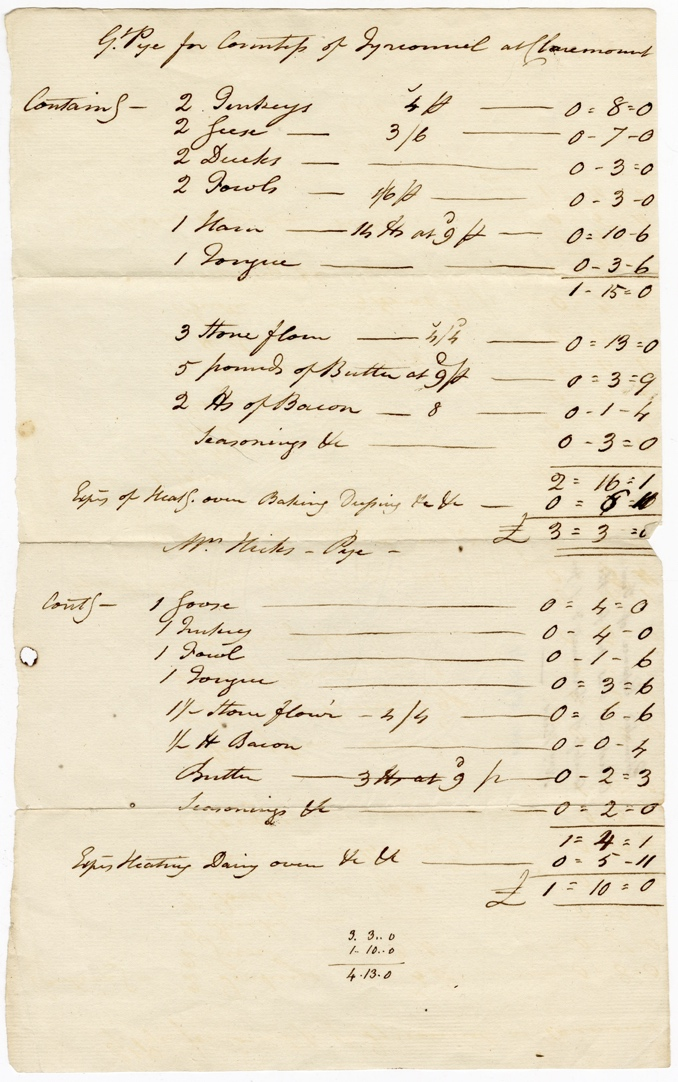 Gt. Pye for Countess of Tyrconnel at Claremount
Containg — 2 Turkeys 4/ pr — 0 = 8 = 0
2 Geese — 3/6 — 0 - 7 - 0
2 Ducks — — 0 - 3 = 0
2 Fowls — 1/6 pr — 0 - 3 - 0
1 Ham — 14 lbs at 9d pr — 0 = 10 - 6
1 Tongue — — 0 - 3 - 6
1 - 15 = 0
3 Stone flour — 4/4 — 0 = 13 = 0
5 pounds of Butter at 9d pr — 0 = 3 = 9
2 lbs of Bacon — 8 — 0 - 1 - 4
Seasonings &c — 0 - 3 = 0
2 = 16 = 1
Exps of Heatg. oven Baking Dressing &c &c — 0 = 6 - 11
£ 3 = 3 = 0
Mrs. Hicks - Pye -
Contg — 1 Goose — 0 = 4 = 0
1 Turkey — 0 - 4 - 0
1 Fowl — 0 - 1 - 6
1 Tongue — 0 = 3 = 6
1½ Stone flour - 4/4 — 0 = 6 - 6
½ lb Bacon — 0 - 0 - 4
Butter — 3 lbs at 9d p — 0 - 2 = 3
Seasonings &c — 0 = 2 = 0
1 = 4 = 1
Exps Heating Dairy oven &c &c — 0 = 5 - 11
£ 1 = 10 = 0
3. 3.. 0
1- 10.. 0
4. 13. 0